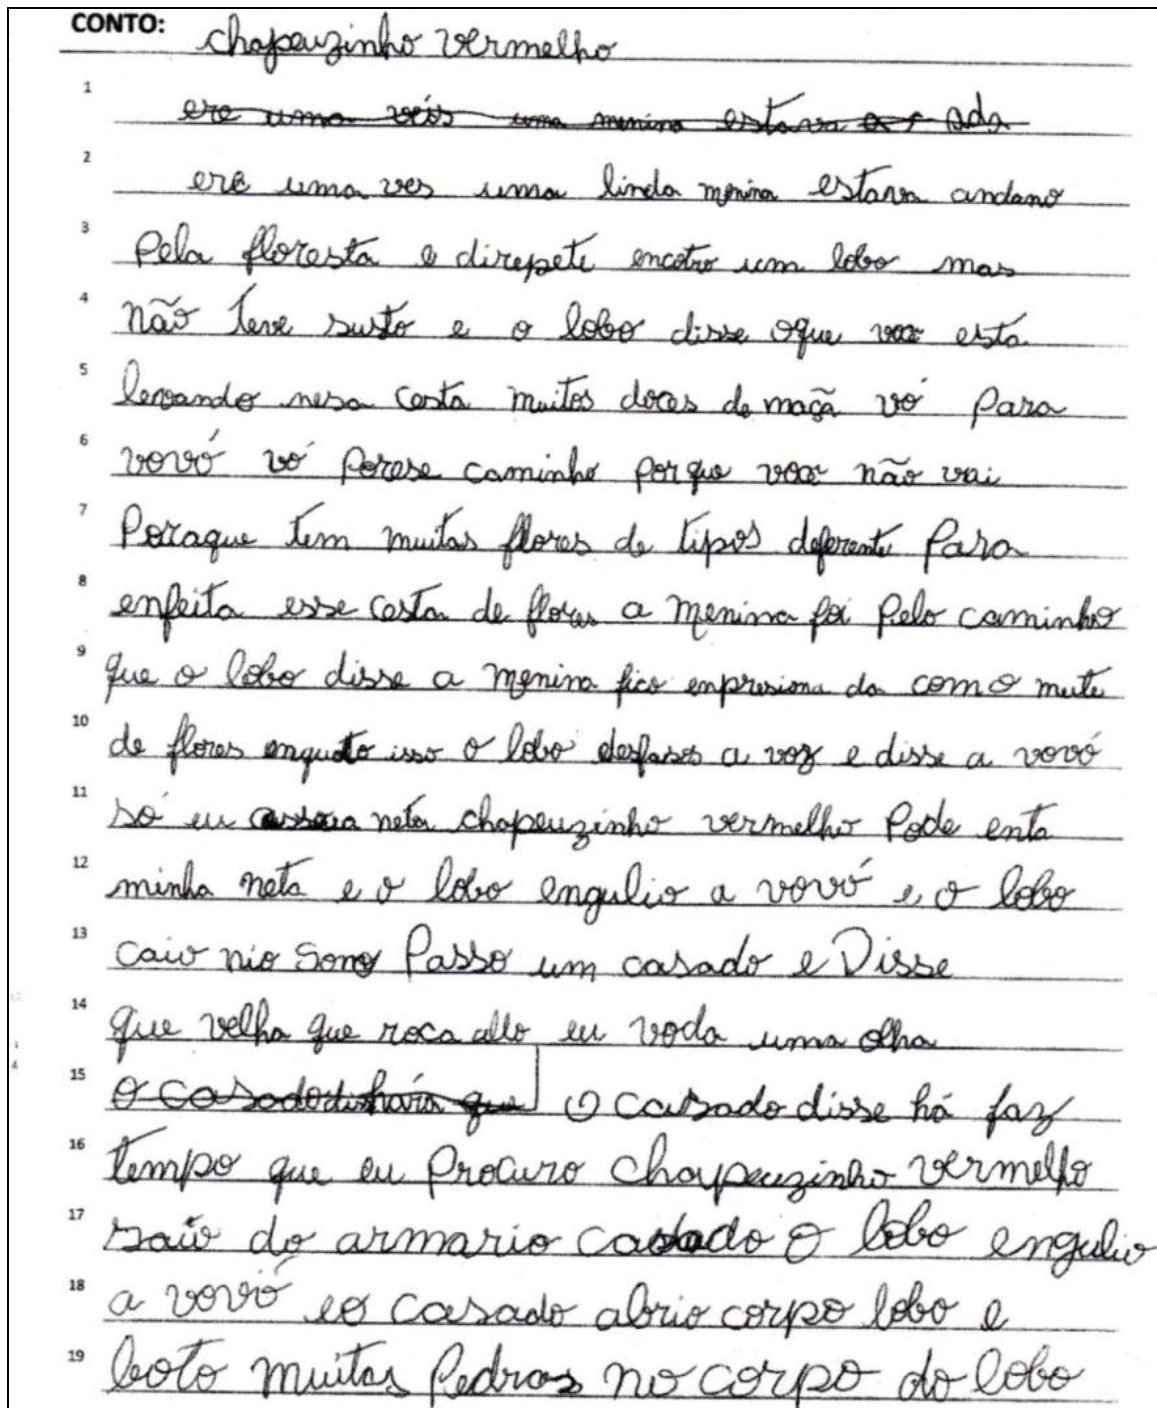 CONTO: chapeuzinho vermelho
1 ere uma véis uma menina estava
2 ere uma ves uma linda menina estava andano
3 Pela floresta e direpete encotro um lobo mas
4 não teve susto e o lobo disse oque voce esta
5 levando nesa cesta muitos doces de maçã vó para
6 vovó vó Porese caminho porque voce não vai
7 Poraque tem muitas flores de tipos deferente Para
8 enfeita esse cesta de flores a menina foi Pelo caminho
9 que o lobo disse a menina fico enpresiona da com o mute
10 de flores enquato isso o lobo desfases a voz e disse a vovó
11 só eu neta chapeuzinho vermelho Pode enta
12 minha neta e o lobo engulio a vovó e o lobo
13 caio nio sono Passo um casado e Disse
14 que velha que roca alto eu voda uma olha
15 O casado que O casado disse há faz
16 tempo que eu Procuro chapeuzinho vermelho
17 saio do armario casado O lobo engulio
18 a vovó eo casado abrio corpo lobo e
19 boto muitas Pedras no corpo do lobo